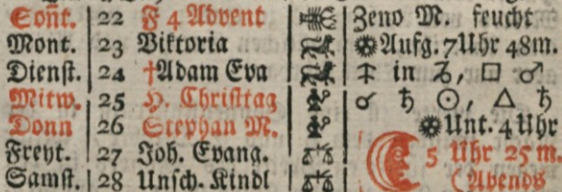 Sont. 22 F 4 Advent Zeno M. feucht
Mont. 23 Viktoria Aufg. 7 Uhr 48 m.
Dienst. 24 †Adam Eva in ♑, □ ♂
Mitw. 25 H. Christtag ☌ ♄ ☉, △ ♄
Donn 26 Stephan M. Unt. 4 Uhr
Freyt. 27 Joh. Evang. 5 Uhr 25 m.
Samst. 28 Unsch. Kindl (Abends